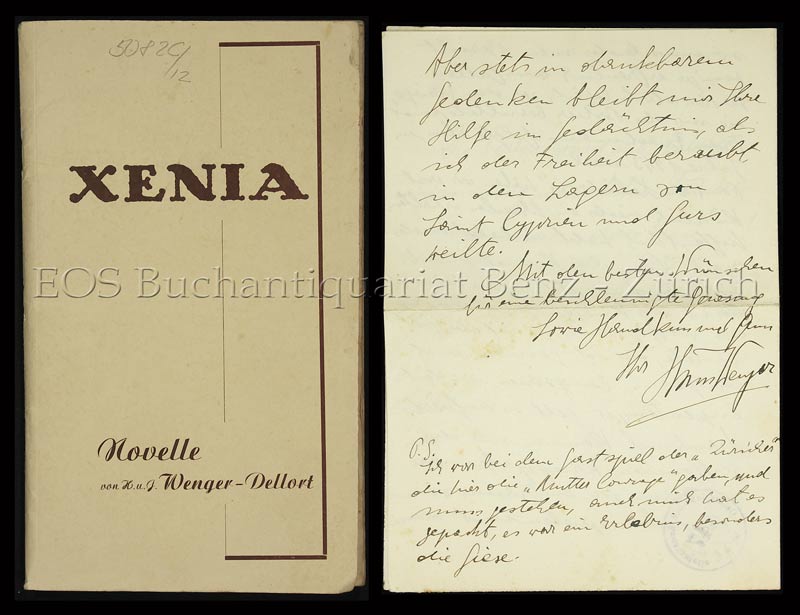 50820/12
XENIA
Novelle
von H. u. J. Wenger-Dellort
Aber stets in dankbarem
Gedenken bleibt mir Ihre
Hilfe im Gedächtnis, als
ich der Freiheit beraubt
in den Lagern von
Saint Cyprien und Gurs
weilte.
Mit den besten Wünschen
für eine beschleunigte Genesung
sowie Handkuss und Gruss
Ihr Hans Wenger
P.S.
Ich war bei dem Gastspiel der „Züricher"
die hier die „Mutter Courage" gaben und
muss gestehen, auch mich hat es
gepackt, es war ein Erlebnis, besonders
die Giese.
EOS Buchantiquariat Benz - Zürich